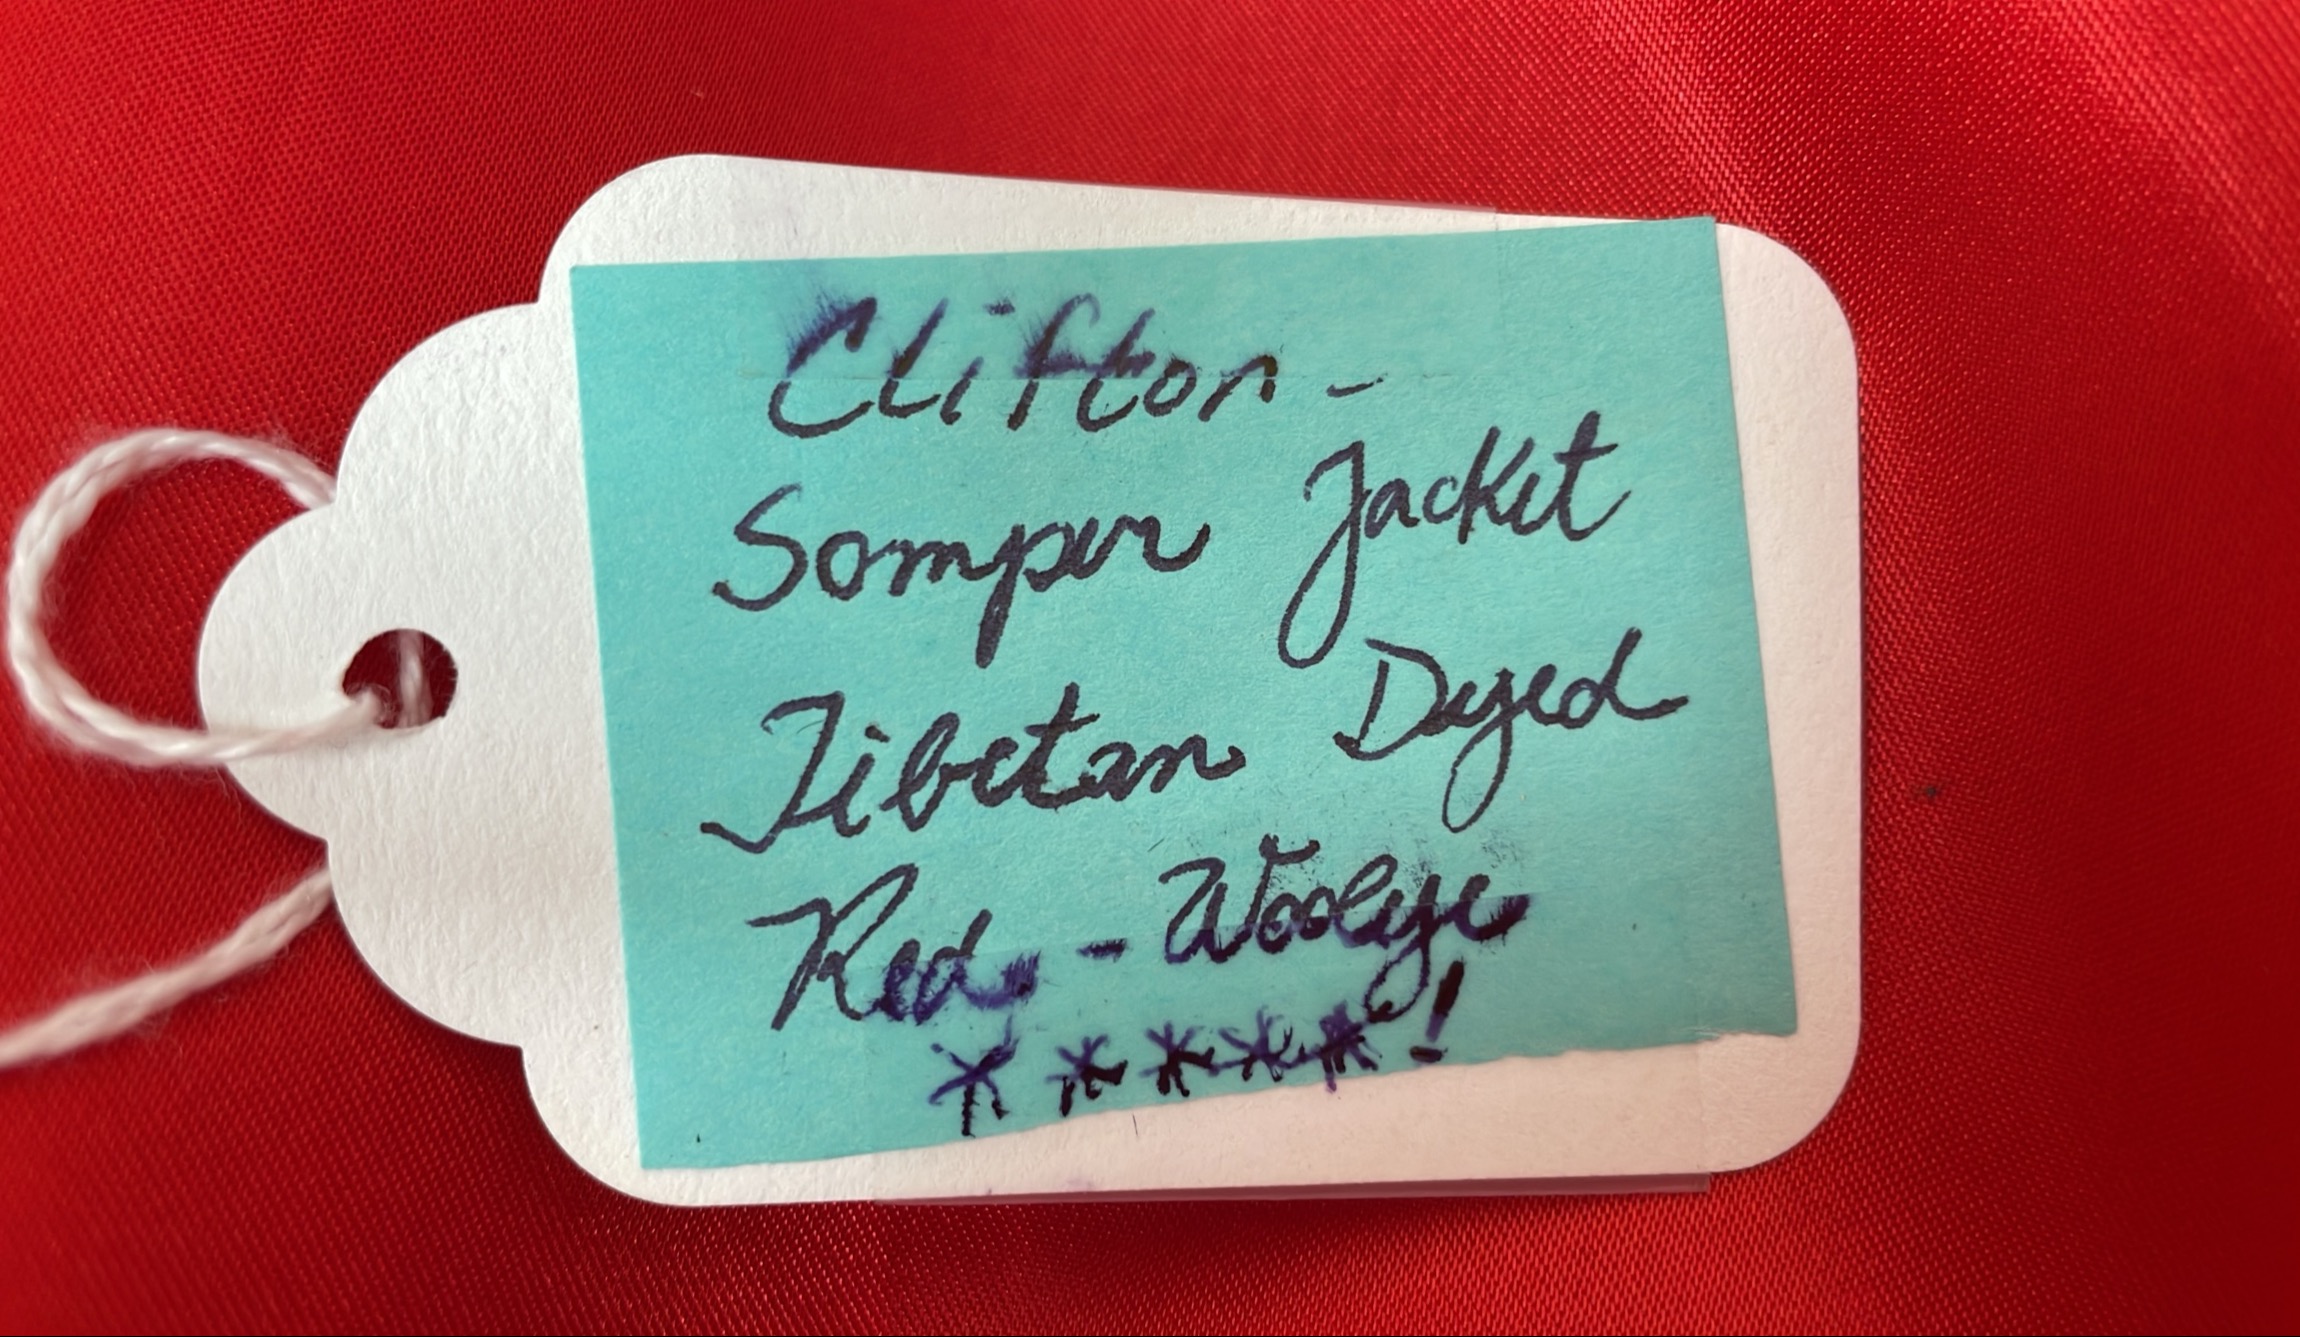 Clifton -
Somper Jacket
Tibetan Dyed
Red - Woolye
* * * * * !